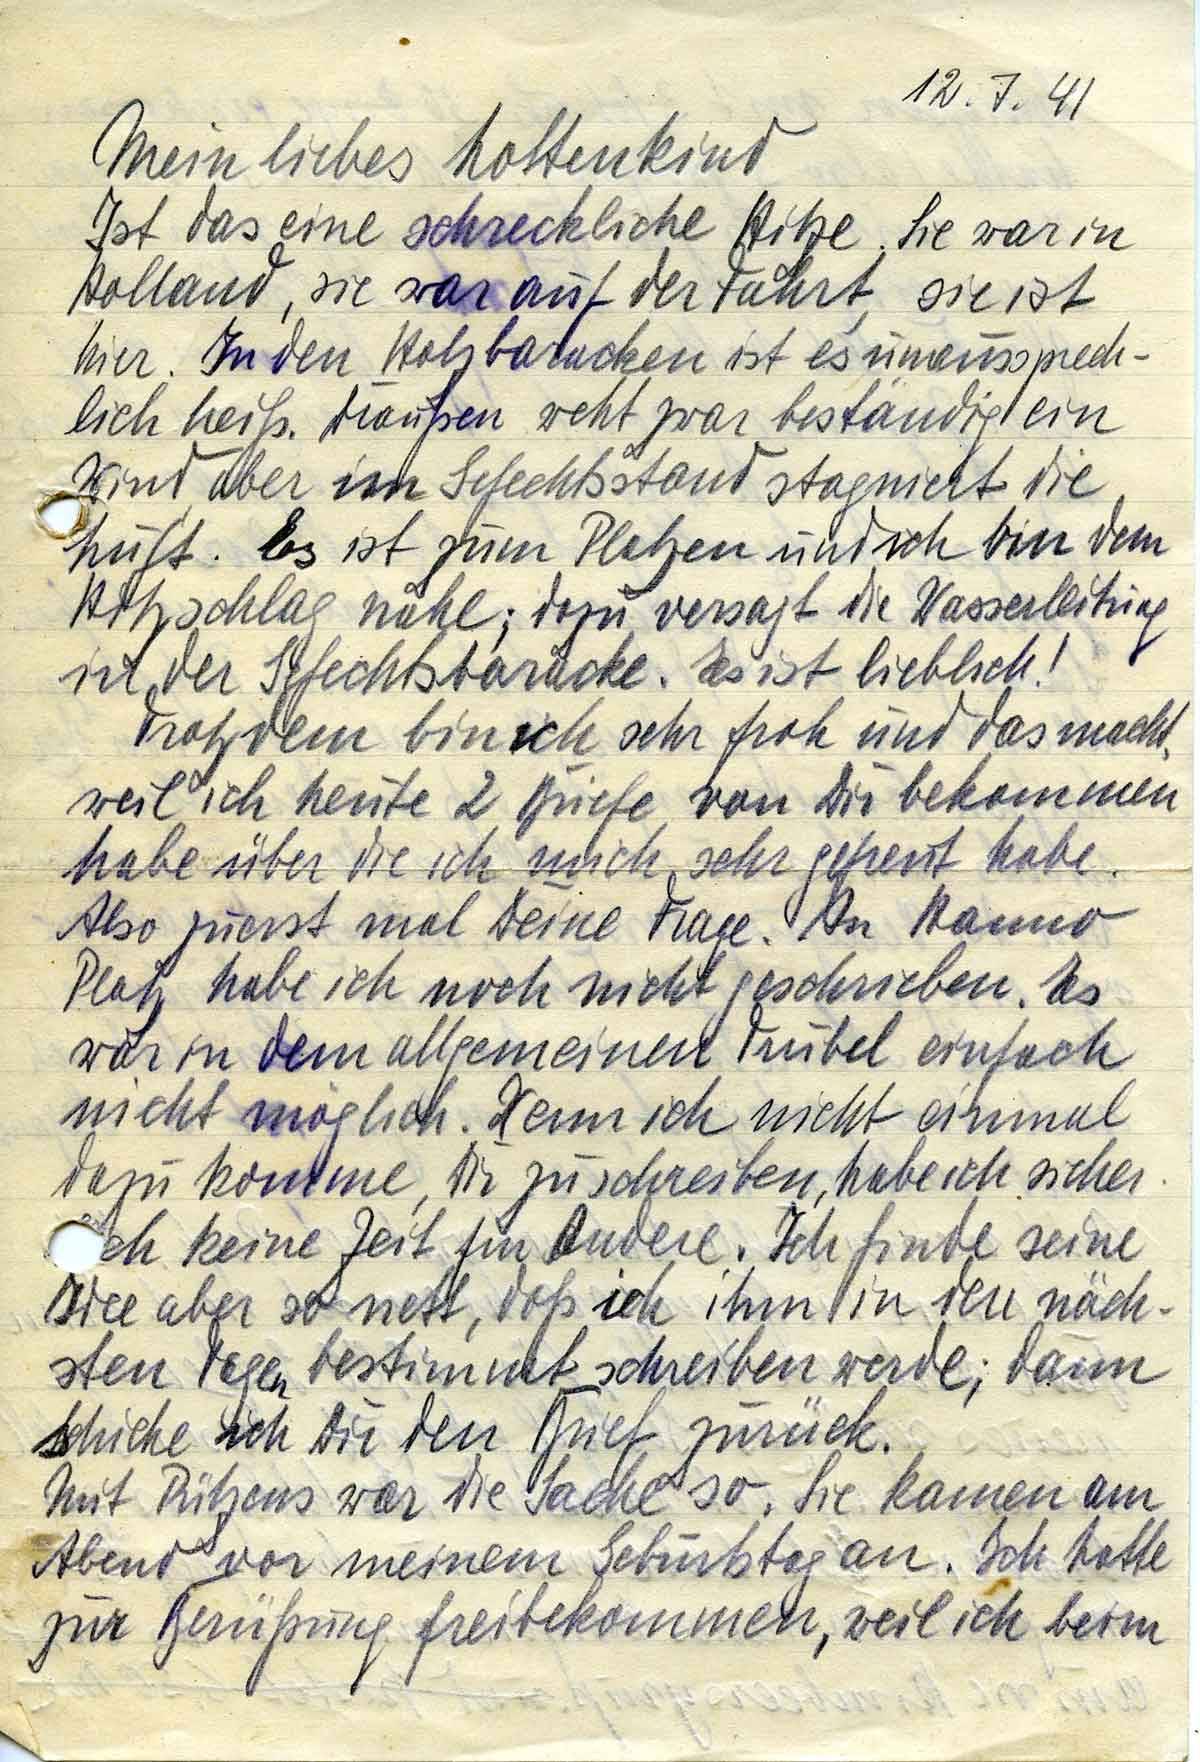 12. 7. 41
Mein liebes Lottenkind
Ist das eine schreckliche Hitze. Sie war in
Holland, sie war auf der Fahrt, sie ist
hier. In den Holzbaracken ist es unaussprech-
lich heiß. Draußen weht zwar beständig ein
Wind, aber im Gefechtsstand stagniert die
Luft. Es ist zum Platzen und ich bin dem
Hitzschlag nahe; dazu versagt die Wasserleitung
in der Gefechtsbaracke. Es ist lieblich!
Trotzdem bin ich sehr froh und das macht,
weil ich heute 2 Briefe von Dir bekommen
habe über die ich mich sehr gefreut habe.
Also zuerst mal Deine Frage. An Hanno
Platz habe ich noch nicht geschrieben. Es
war in dem allgemeinen Trubel einfach
nicht möglich. Wenn ich nicht einmal
dazu komme, Dir zu schreiben, habe ich sicher
ch keine Zeit für Andere. Ich finde seine
Idee aber so nett, daß ich ihm in den näch-
sten Tagen bestimmt schreiben werde; dann
schicke ich Dir den Brief zurück.
Mit war die Sache so. Sie kamen am
Abend vor meinem Geburtstag an. Ich hatte
zur Begrüßung freibekommen, weil ich beim